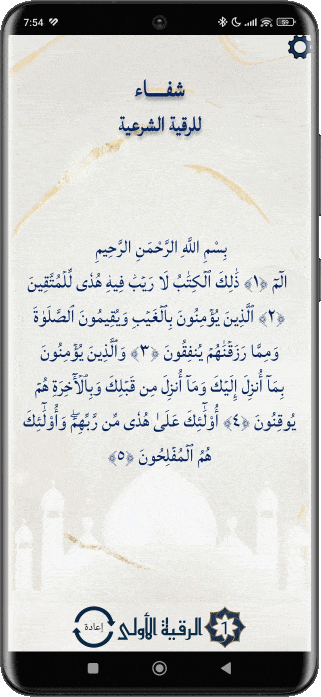 7:54
59
شفـــاء
للرقية الشرعية
بِسْمِ اللَّهِ الرَّحْمَنِ الرَّحِيمِ
الٓمٓ ﴿١﴾ ذَٰلِكَ ٱلْكِتَٰبُ لَا رَيْبَ ۛ فِيهِ ۛ هُدًى لِّلْمُتَّقِينَ
﴿٢﴾ ٱلَّذِينَ يُؤْمِنُونَ بِٱلْغَيْبِ وَيُقِيمُونَ ٱلصَّلَوٰةَ
وَمِمَّا رَزَقْنَٰهُمْ يُنفِقُونَ ﴿٣﴾ وَٱلَّذِينَ يُؤْمِنُونَ
بِمَآ أُنزِلَ إِلَيْكَ وَمَآ أُنزِلَ مِن قَبْلِكَ وَبِٱلْءَاخِرَةِ هُمْ
يُوقِنُونَ ﴿٤﴾ أُو۟لَٰٓئِكَ عَلَىٰ هُدًى مِّن رَّبِّهِمْ ۖ وَأُو۟لَٰٓئِكَ
هُمُ ٱلْمُفْلِحُونَ ﴿٥﴾
1 الرقية الأولى إعادة